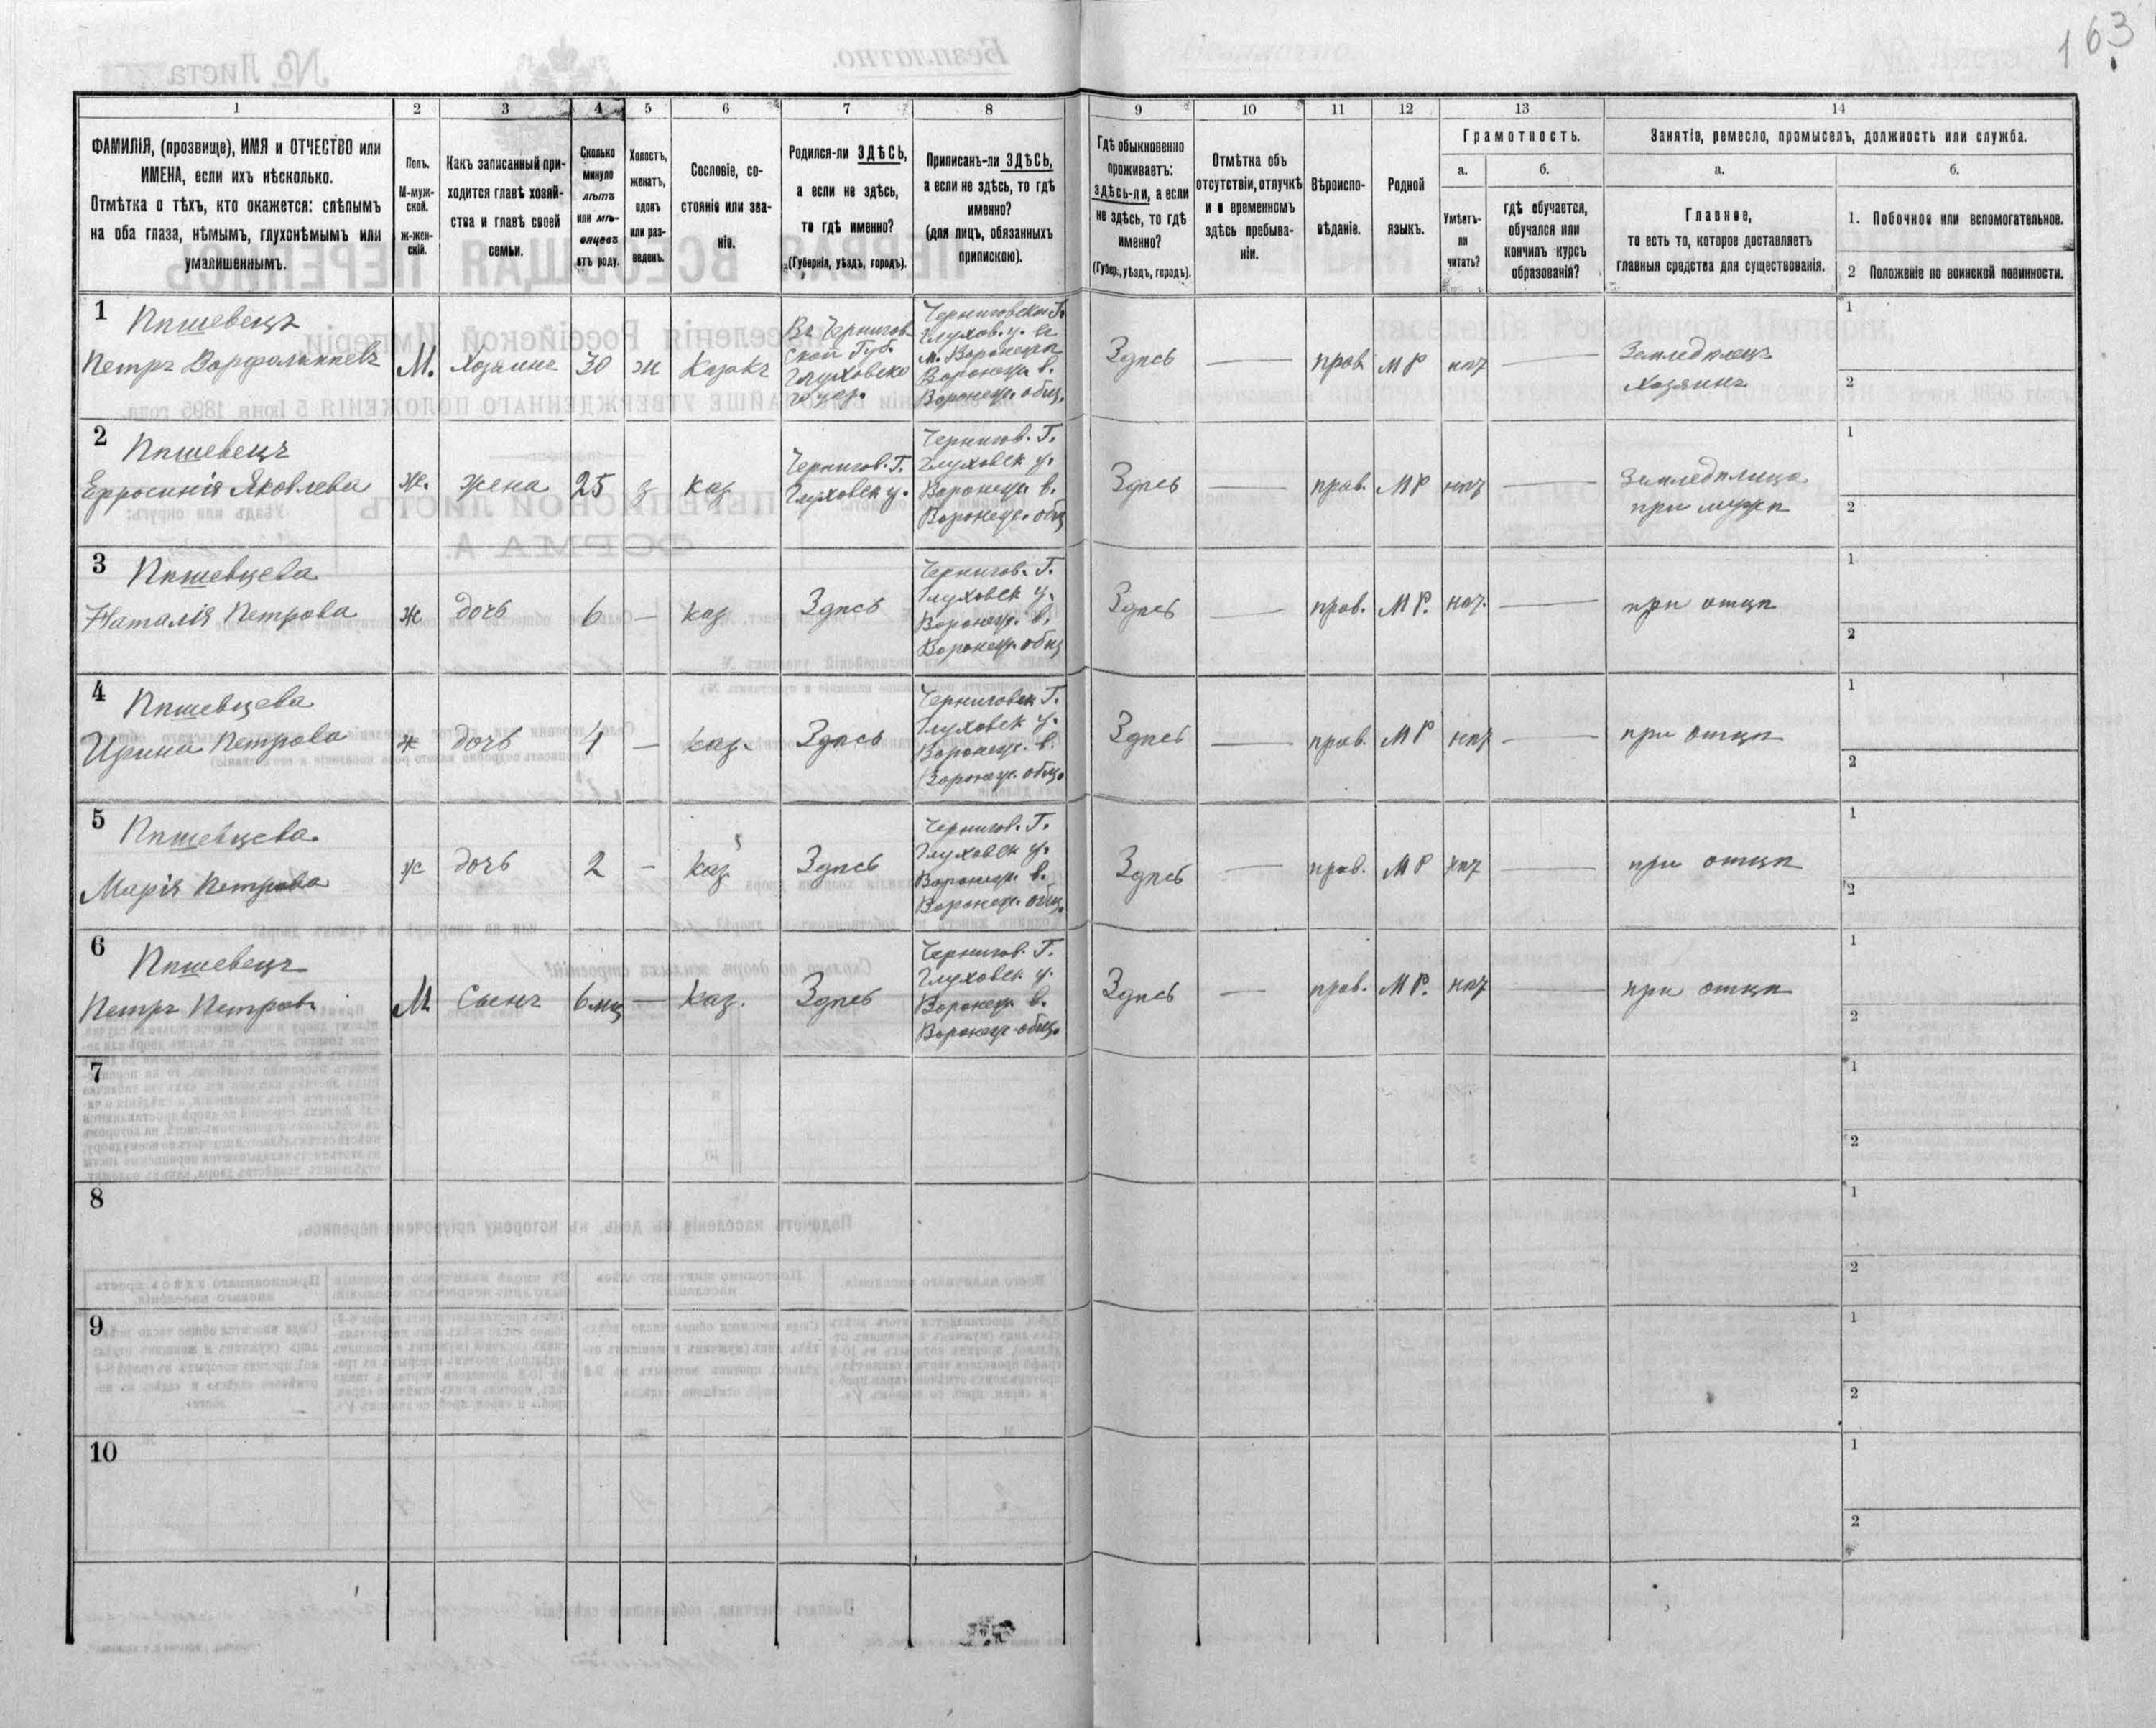 163
1
2
3
4
5
6
7
8
9
10
11
12
13
14
ФАМИЛІЯ, (прозвище), ИМЯ и ОТЧЕСТВО или
ИМЕНА, если ихъ нѣсколько.
Отмѣтка о тѣхъ, кто окажется: слѣпымъ
на оба глаза, нѣмымъ, глухонѣмымъ или
умалишеннымъ.
Полъ.
М-муж-
ской.
ж-жен-
скій.
Какъ записанный при-
ходится главѣ хозяй-
ства и главѣ своей
семьи.
Сколько
минуло
лѣтъ
или мѣ-
сяцевъ
отъ роду.
Холостъ,
женатъ,
вдовъ
или раз-
веденъ.
Сословіе, со-
стояніе или зва-
ніе.
Родился-ли ЗДѢСЬ,
а если не здѣсь,
то гдѣ именно?
(Губернія, уѣздъ, городъ).
Приписанъ-ли ЗДѢСЬ,
а если не здѣсь, то гдѣ
именно?
(для лицъ, обязанныхъ
припискою).
Гдѣ обыкновенно
проживаетъ:
здѣсь-ли, а если
не здѣсь, то гдѣ
именно?
(Губер., уѣздъ, городъ).
Отмѣтка объ
отсутствіи, отлучкѣ
и о временномъ
здѣсь пребыва-
ніи.
Вѣроиспо-
вѣданіе.
Родной
языкъ.
Грамотность.
а.
Умѣетъ-
ли
читать?
б.
гдѣ обучается,
обучался или
кончилъ курсъ
образованія?
Занятіе, ремесло, промыселъ, должность или служба.
а.
Главное,
то есть то, которое доставляетъ
главныя средства для существованія.
б.
1. Побочное или вспомогательное.
2 Положеніе по воинской повинности.
1
Пѣшевецъ
Петръ Варфоломѣевъ
М.
Хозяинъ
30
ж
Казакъ
Въ Чернигов
ской Губ.
Глуховско
го уез.
Черниговской Г.
Глухов. у.
м. Воронежѣ
Воронеж. в.
Воронеж. общ.
Здѣсь
—
прав
МР
нѣт
—
Земледѣлецъ
Хозяинъ
1
2
2
Пѣшевецъ
Ефросинія Яковлева
ж.
жена
25
з
каз
Чернигов. Г.
Глуховск у.
Чернигов. Г.
Глуховск у.
Воронеж. в.
Воронеж. общ
Здѣсь
—
прав.
МР
нѣт
—
Земледѣлица
при мужѣ
1
2
3
Пѣшевцева
Наталія Петрова
ж
дочь
6
—
каз
Здѣсь
Чернигов. Г.
Глуховск у.
Воронеж. в.
Воронеж. общ
Здѣсь
—
прав.
МР.
нѣт.
—
при отцѣ
1
2
4
Пѣшевцева
Ирина Петрова
ж
дочь
4
—
каз.
Здѣсь
Черниговск Г.
Глуховск у.
Воронеж. в.
Воронеж. общ.
Здѣсь
—
прав.
МР
нѣт
—
при отцѣ
1
2
5
Пѣшевцева
Марія Петрова
ж
дочь
2
—
каз
Здѣсь
Чернигов. Г.
Глуховск у.
Воронеж. в.
Воронеж. общ.
Здѣсь
—
прав.
МР
нѣт
—
при отцѣ
1
2
6
Пѣшевецъ
Петръ Петров
М
Сынъ
6 мц
—
Каз.
Здѣсь
Чернигов. Г.
Глуховск у.
Воронеж в.
Воронеж. общ.
Здѣсь
—
прав.
МР.
нѣт
—
при отцѣ
1
2
7
1
2
8
1
2
9
1
2
10
1
2